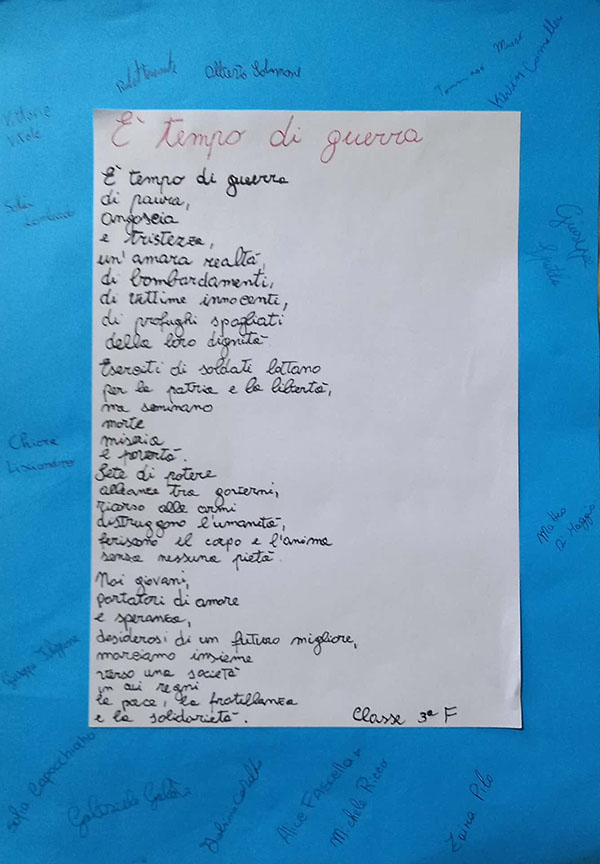 Alberto Solimone
Tommaso
Kevin
Vittorio
Vitale
È tempo di guerra
È tempo di guerra
di paura,
angoscia
e tristezza,
un'amara realtà,
di bombardamenti,
di vittime innocenti,
di profughi spogliati
della loro dignità
Eserciti di soldati lottano
per la patria e la libertà,
ma seminano
morte
miseria
e povertà.
Sete di potere
alleanze tra governi,
ricorso alle armi
distruggono l'umanità,
feriscono il corpo e l'anima
senza nessuna pietà.
Noi giovani,
portatori di amore
e speranza,
desiderosi di un futuro migliore,
marciamo insieme
verso una società
in cui regni
la pace, la fratellanza
e la solidarietà.
Classe 3ª F
Giuseppe
Sofia
Lombardo
Chiara
Matteo
Di Maggio
Giuseppe
Sofia Capocchiano
Gabriele
Alice
Michele Ricco
Laura Pilo